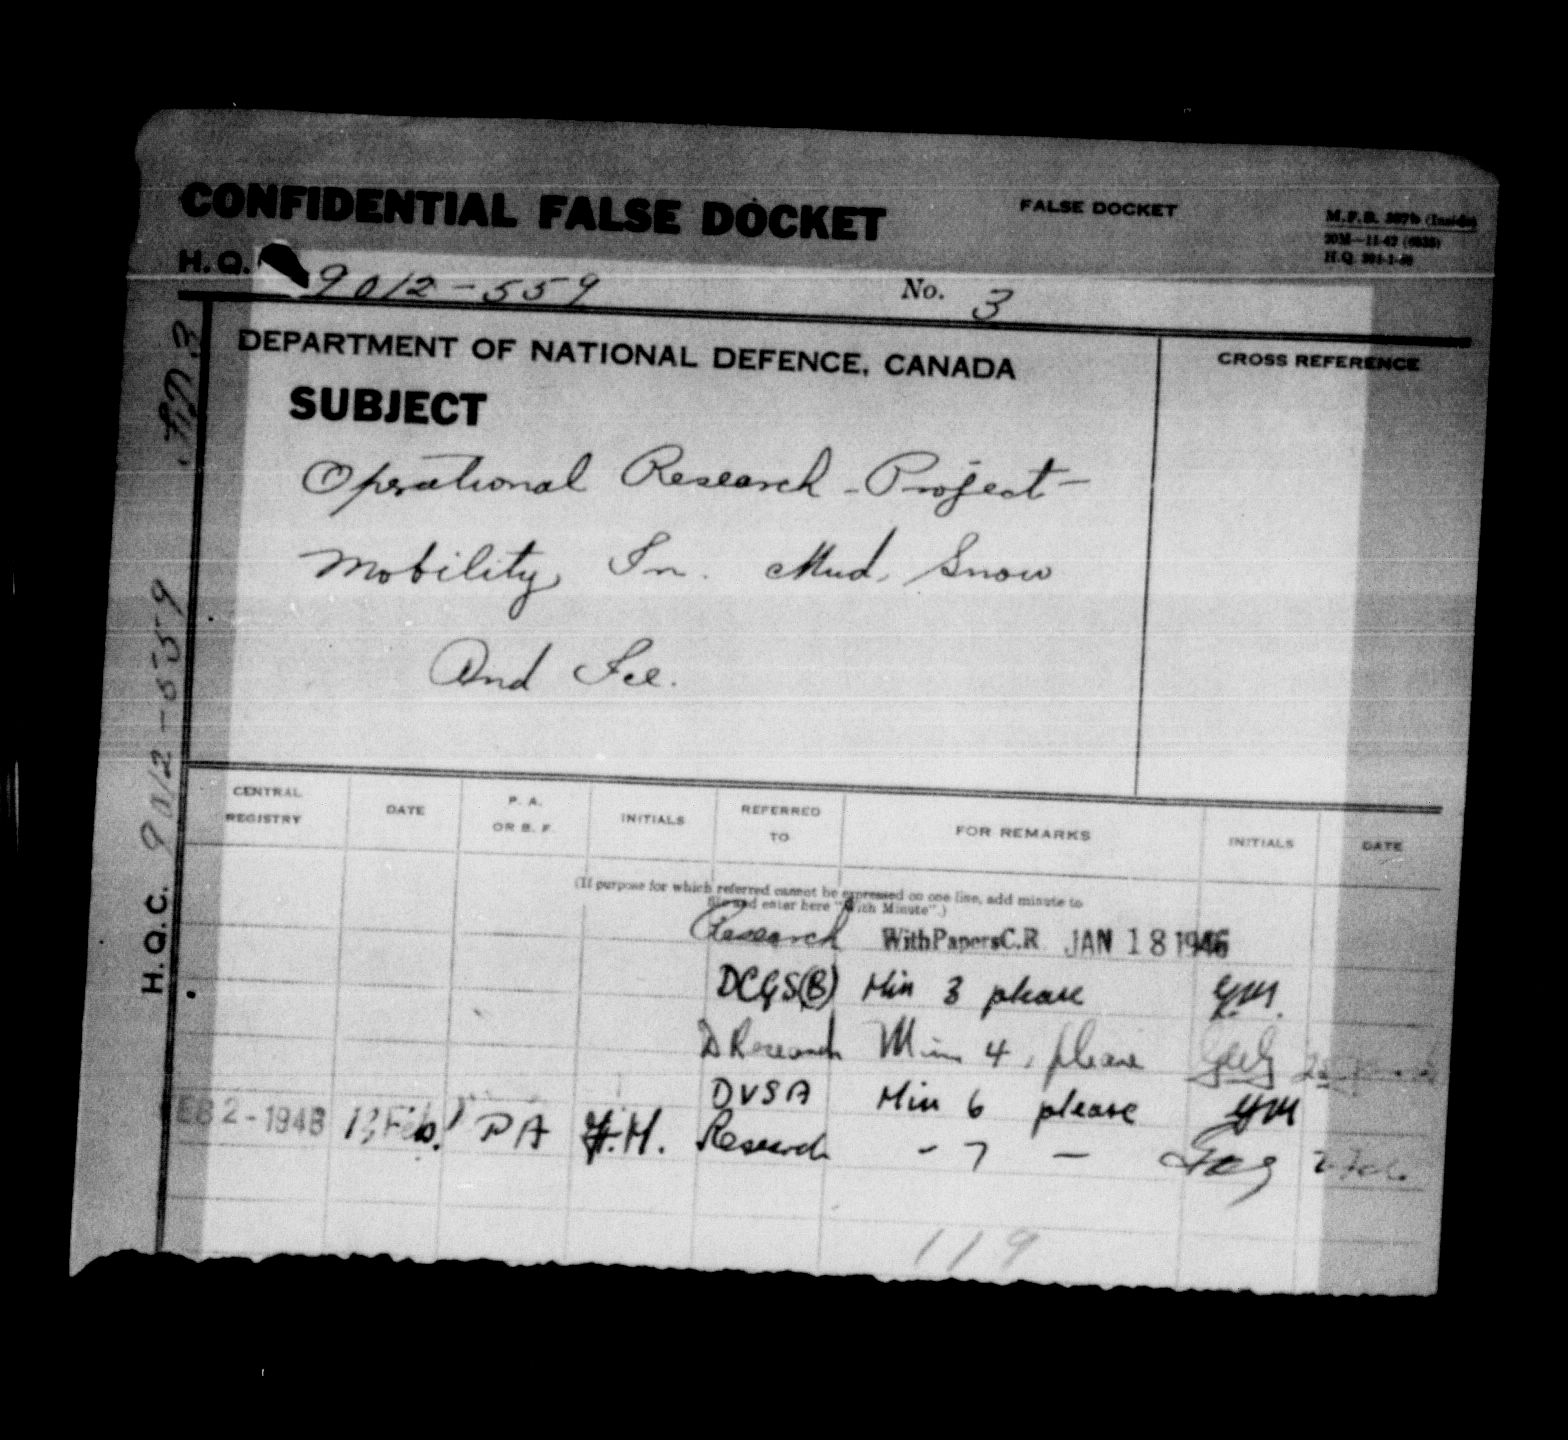 CONFIDENTIAL FALSE DOCKET
FALSE DOCKET
M.F.B. 507b (Inside)
H.Q.
9012-559
No. 3
DEPARTMENT OF NATIONAL DEFENCE, CANADA
CROSS REFERENCE
SUBJECT
Operational Research - Project -
Mobility In. Mud, Snow
And Ice.
H.Q.C. 9012-559
CENTRAL REGISTRY
DATE
P. A. OR B. F.
INITIALS
REFERRED TO
FOR REMARKS
INITIALS
DATE
(If purpose for which referred cannot be expressed on one line, add minute to
file and enter here "With Minute".)
Research With Papers C.R JAN 18 1946
DCGS(B) Min 3 please
D Research Min 4, please
DVSA Min 6 please
EB 2-1946 13 Feb. PA Research - 7 - 2 Feb.
119